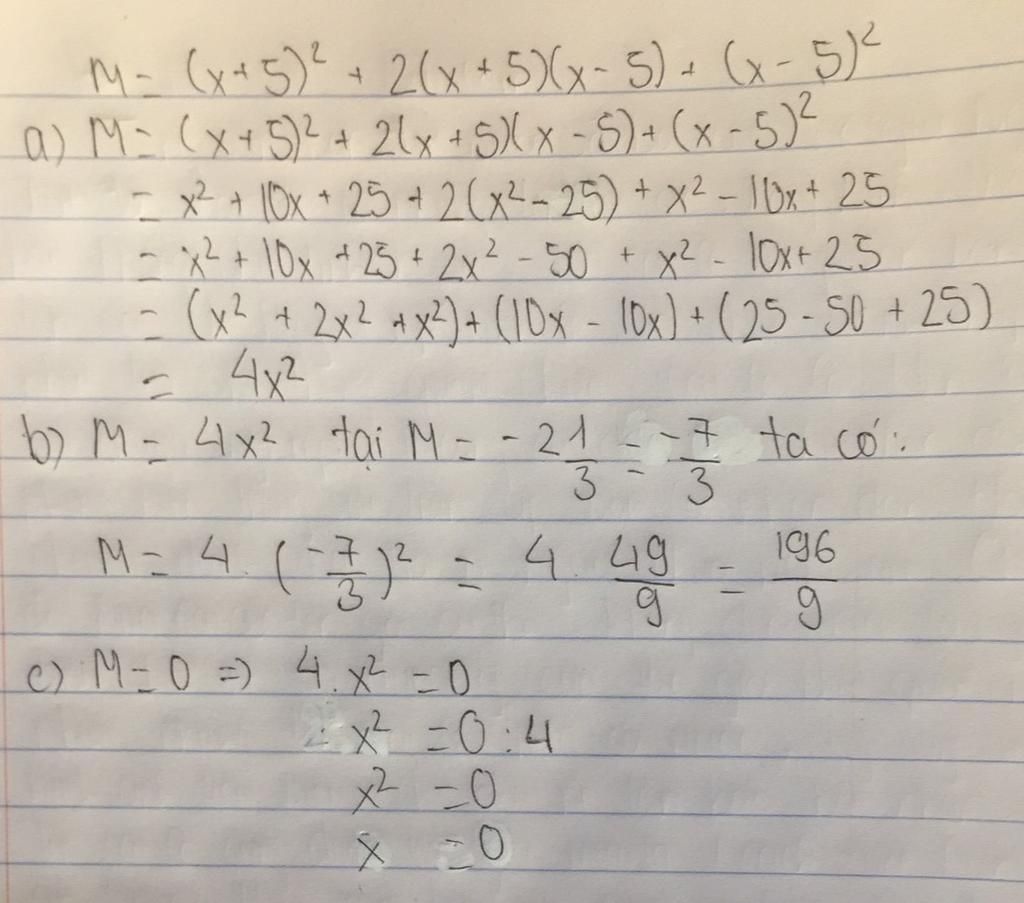 M = (x+5)² + 2(x+5)(x-5) + (x-5)²
a) M = (x+5)² + 2(x+5)(x-5) + (x-5)²
= x² + 10x + 25 + 2(x² - 25) + x² - 10x + 25
= x² + 10x + 25 + 2x² - 50 + x² - 10x + 25
= (x² + 2x² + x²) + (10x - 10x) + (25 - 50 + 25)
= 4x²
b) M = 4x² tại M = -2 1/3 = -7/3 ta có:
M = 4. (-7/3)² = 4. 49/9 = 196/9
c) M = 0 => 4. x² = 0
x² = 0 : 4
x² = 0
x = 0